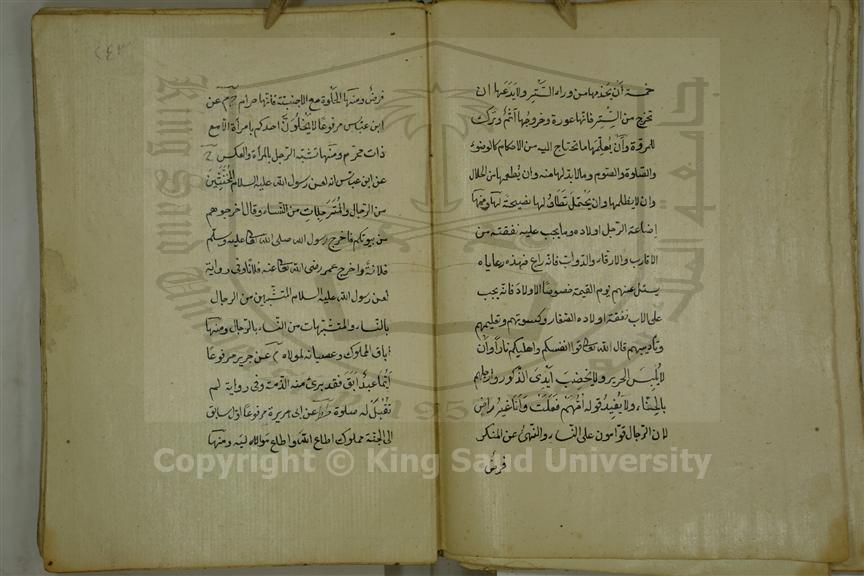 خمسة أن يخدمها من وراء الستر ولا يدعها ان
تخرج من الستر فانها عورة وخروجها أثم وترك
للمروة وأن يعلمها ما تحتاج اليه من الاحكام كالوضوء
والصلوة والصوم وما لا بد لها منه وان يطعمها من الحلال
وان لا يظلمها وان يحتمل تطاولها نصيحة لها ومنها
إضاعة الرجل اولاده وما يجب عليه نفقته من
الاقارب والارقاء والدواب فانه راع فهذه رعاياه
يسئل عنهم يوم القيمة خصوصًا الاولاد فانه يجب
على الاب نفقة اولاده الصغار وكسوتهم وتعليمهم
وتأديبهم قال الله تعالى قوا انفسكم واهليكم نارًا وأن
لا يُلبس الحرير ولا يخضب أيدى الذكور وارجلهم
بالحناء ولا يفيد قوله أمهم فعلت وأنا غير راض
لان الرجال قوامون على النساء والنهى عن المنكر
فرض
فرض ومنها الخلوة مع الاجنبية فانها حرام عن
ابن عباس مرفوعا لا يخلون احدكم بامرأة الا مع
ذات محرم ومنها تشبه الرجل بالمرأة والعكس
عن ابن عباس انه لعن رسول الله عليه السلام المخنثين
من الرجال والمترجلات من النساء وقال اخرجوهم
من بيوتكم فاخرج رسول الله صلى الله تعالى عليه وسلم
فلانة واخرج عمر رضى الله تعالى عنه فلانا وفى رواية
لعن رسول الله عليه السلام المتشبهين من الرجال
بالنساء والمتشبهات من النساء بالرجال ومنها
اباق المملوك وعصيانه لمولاه عن جرير مرفوعا
أيما عبد أبق فقد برئ منه الذمة وفى رواية لم
تقبل له صلوة عن ابى هريرة مرفوعا اول سابق
الى الجنة مملوك اطاع الله واطاع مواليه ومنها
Copyright © King Saud University